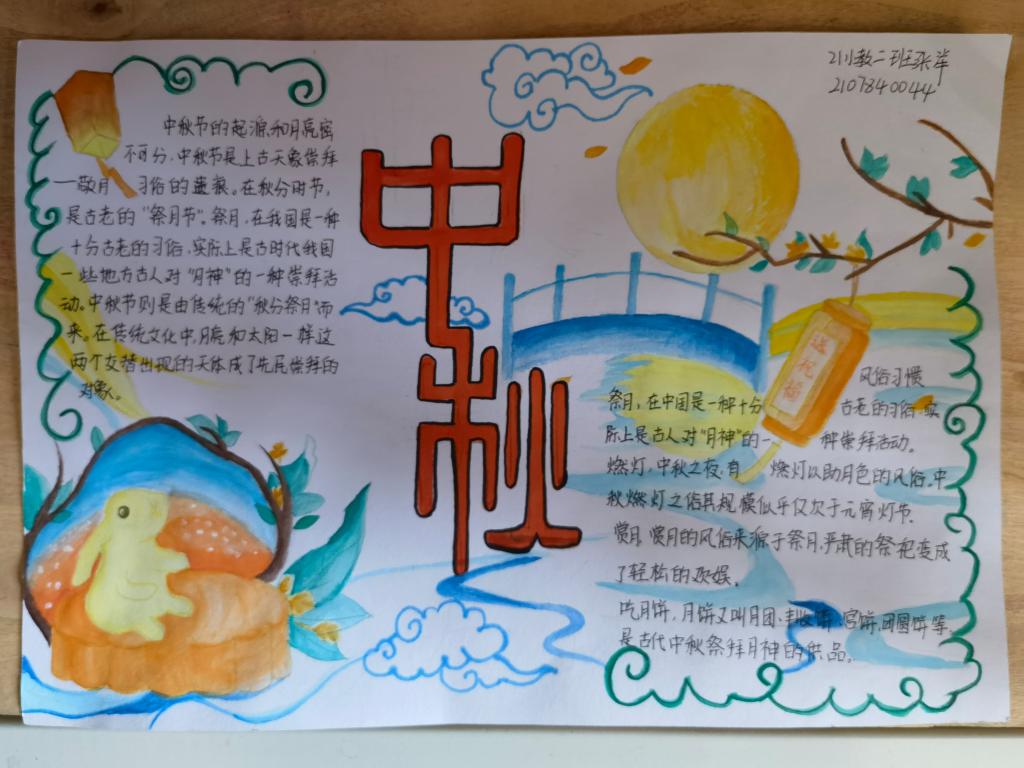 21小教二班张洋
2107840044
中秋
中秋节的起源和月亮密
不可分,中秋节是上古天象崇拜
一敬月 习俗的遗痕。在秋分时节,
是古老的“祭月节”。祭月,在我国是一种
十分古老的习俗,实际上是古时代我国
一些地方古人对“月神”的一种崇拜活
动。中秋节则是由传统的“秋分祭月”而
来。在传统文化中,月亮和太阳一样这
两个交替出现的天体成了先民崇拜的
对象。
送祝福
风俗习惯
祭月,在中国是一种十分 古老的习俗,实
际上是古人对“月神”的一 种崇拜活动。
燃灯,中秋之夜,有 燃灯以助月色的风俗。中
秋燃灯之俗其规模似乎仅次于元宵灯节.
赏月,赏月的风俗来源于祭月,严肃的祭祀变成
了轻松的欢娱。
吃月饼,月饼又叫月团、丰收饼、宫饼、团圆饼等,
是古代中秋祭拜月神的供品。